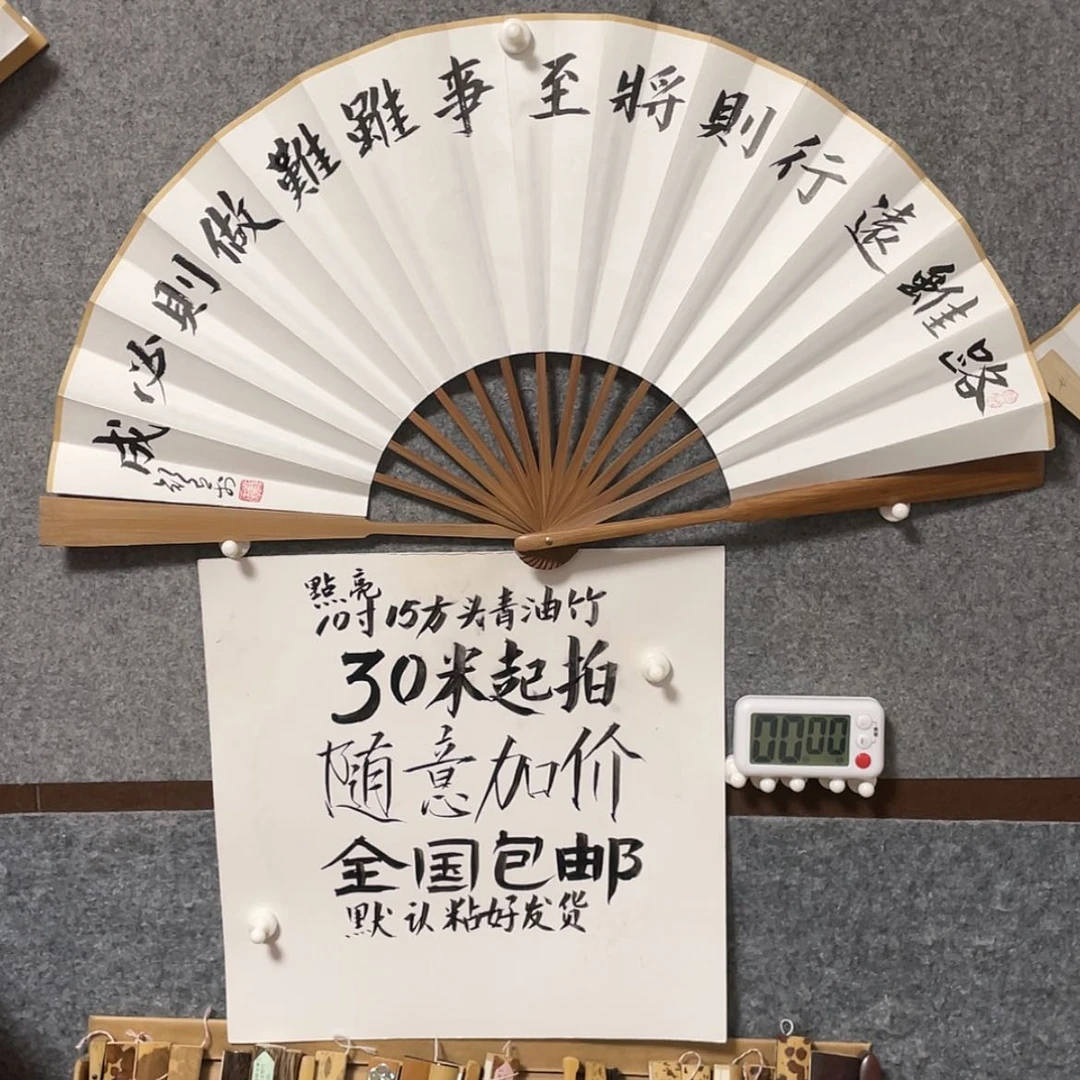 路雖遠行則將至事雖難做則必成
點亮
10寸15方头青油竹
30米起拍
随意加价
全国包邮
默认粘好发货
00 00